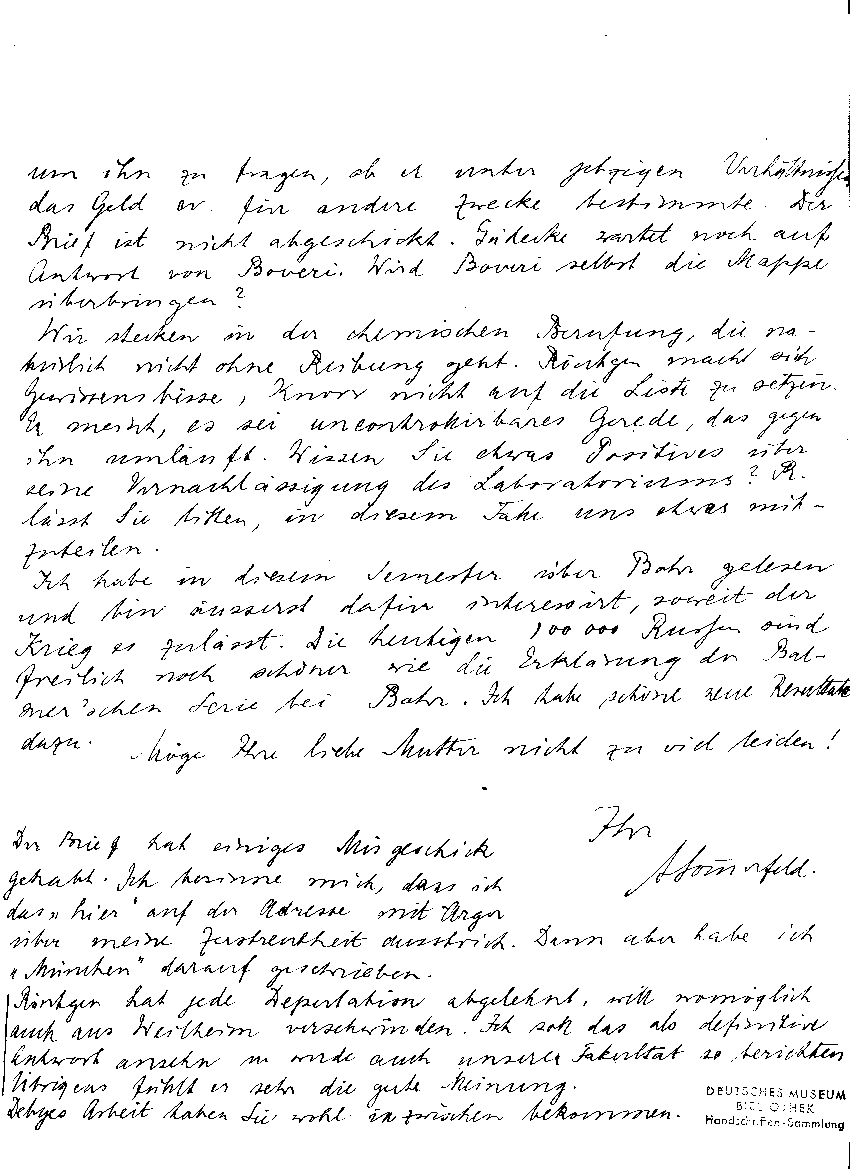 um ihn zu fragen, ob er unter jetzigen Verhältnissen
das Geld ev. für andere Zwecke bestimmte. Der
Brief ist nicht abgeschickt. Güdecke wartet noch auf
Antwort von Boveri. Wird Boveri selbst die Mappe
überbringen?
Wir stecken in der chemischen Berufung, die na-
türlich nicht ohne Reibung geht. Röntgen macht sich
Gewissensbisse, Knorr nicht auf die Liste zu setzen.
Er meint, es sei uncontrolirbares Gerede, das gegen
ihn umläuft. Wissen Sie etwas Positives über
seine Vernachlässigung des Laboratoriums? R.
lässt Sie bitten, in diesem Falle uns etwas mit-
zuteilen.
Ich habe in diesem Semester über Bohr gelesen
und bin äusserst dafür interessirt, soweit der
Krieg es zulässt. Die heutigen 100 000 Russen sind
freilich noch schöner wie die Erklärung der Bal-
mer'schen Serie bei Bohr. Ich habe schöne neue Resultate
dazu.
Möge Ihre liebe Mutter nicht zu viel leiden!
Ihr
ASommerfeld.
Der Brief hat einiges Misgeschick
gehabt. Ich besinne mich, dass ich
das „hier" auf der Adresse mit Ärger
über meine Zerstreutheit ausstrich. Dann aber habe ich
„München" darauf geschrieben.
Röntgen hat jede Deputation abgelehnt, will womöglich
auch aus Weilheim verschwinden. Ich soll das als definitive
Antwort ansehn u werde auch unserer Fakultät so berichten
Übrigens fühlt er sehr die gute Meinung.
Debyes Arbeit haben Sie wohl inzwischen bekommen.
DEUTSCHES MUSEUM
BIBLIOTHEK
Handschriften-Sammlung